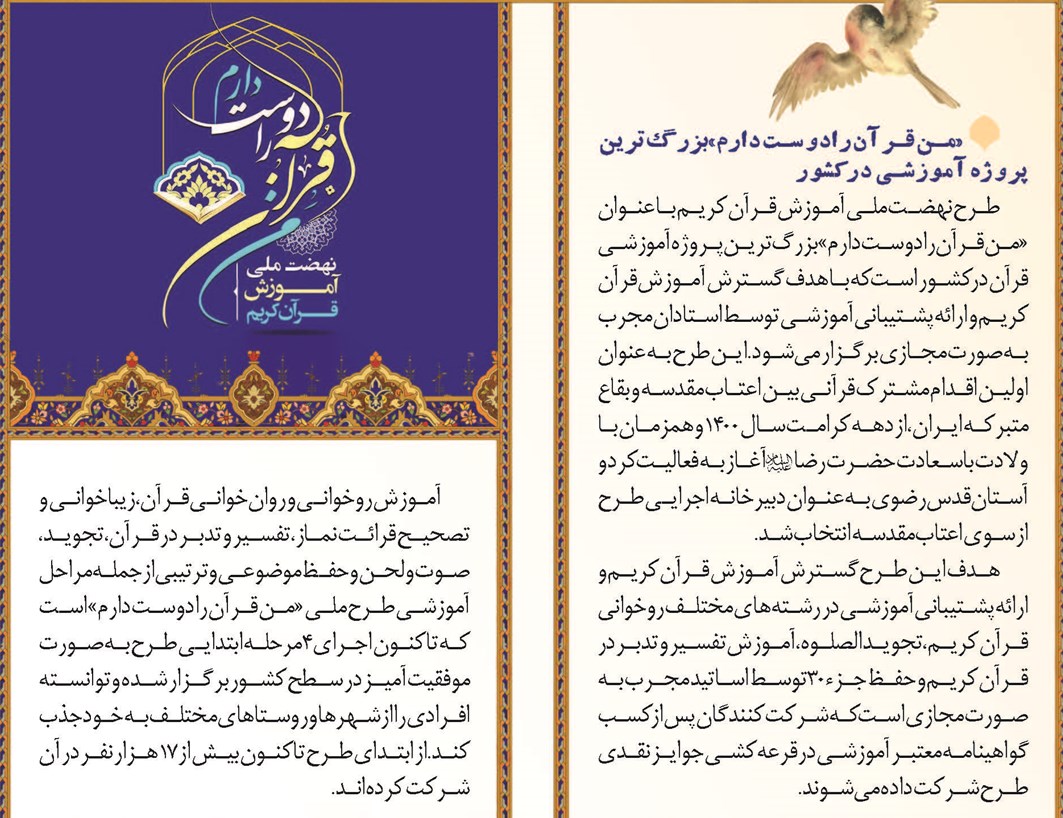 «من قرآن را دوست دارم» بزرگ ترین
پروژه آموزشی در کشور
طرح نهضت ملی آموزش قرآن کریم با عنوان
«من قرآن را دوست دارم» بزرگ ترین پروژه آموزشی
قرآن در کشور است که با هدف گسترش آموزش قرآن
کریم و ارائه پشتیبانی آموزشی توسط استادان مجرب
به صورت مجازی برگزار می شود. این طرح به عنوان
اولین اقدام مشترک قرآنی بین اعتاب مقدسه و بقاع
متبرکه ایران، از دهه کرامت سال ۱۴۰۰ و همزمان با
ولادت باسعادت حضرت رضا علیه السلام آغاز به فعالیت کرد و
آستان قدس رضوی به عنوان دبیرخانه اجرایی طرح
از سوی اعتاب مقدسه انتخاب شد.
هدف این طرح گسترش آموزش قرآن کریم و
ارائه پشتیبانی آموزشی در رشته های مختلف روخوانی
قرآن کریم، تجوید الصلوه، آموزش تفسیر و تدبر در
قرآن کریم و حفظ جزء ۳۰ توسط اساتید مجرب به
صورت مجازی است که شرکت کنندگان پس از کسب
گواهینامه معتبر آموزشی در قرعه کشی جوایز نقدی
طرح شرکت داده می شوند.
من
قرآن
را
دوست
دارم
نهضت ملی
آموزش
قرآن کریم
آموزش روخوانی و روان خوانی قرآن، زیباخوانی و
تصحیح قرائت نماز، تفسیر و تدبر در قرآن، تجوید،
صوت و لحن و حفظ موضوعی و ترتیبی از جمله مراحل
آموزشی طرح ملی «من قرآن را دوست دارم» است
که تاکنون اجرای ۴ مرحله ابتدایی طرح به صورت
موفقیت آمیز در سطح کشور برگزار شده و توانسته
افرادی را از شهرها و روستاهای مختلف به خود جذب
کند. از ابتدای طرح تاکنون بیش از ۱۷ هزار نفر در آن
شرکت کرده اند.